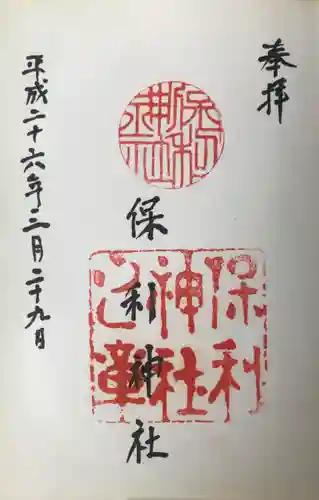 奉拝
保利神社
平成二十六年三月二十九日
保利
神社